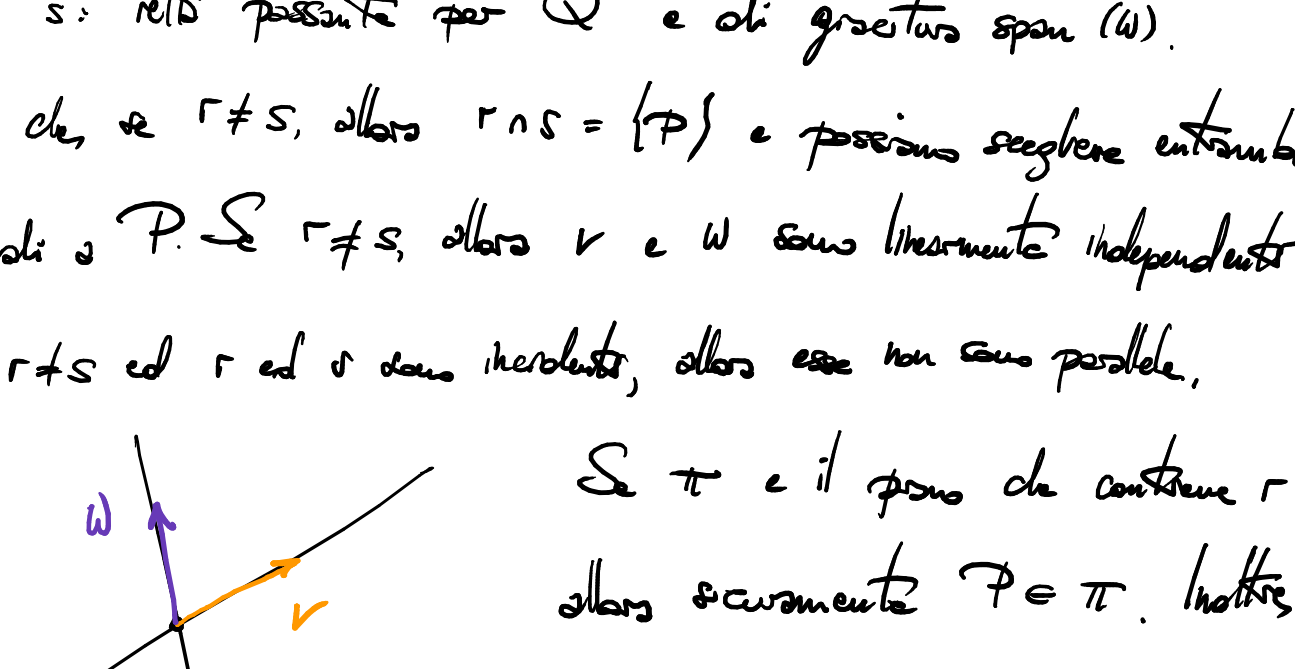 s: retta passante per Q e di giacitura span (w).
che, se r ≠ s, allora r ∩ s = {P} e possiamo scegliere entramb
ali a P. Se r ≠ s, allora v e w sono linearmente indipendenti
r ≠ s ed r ed s sono incidenti, allora esse non sono parallele.
Se π e il piano che contiene r
w
allora sicuramente P ∈ π. Inoltre,
v